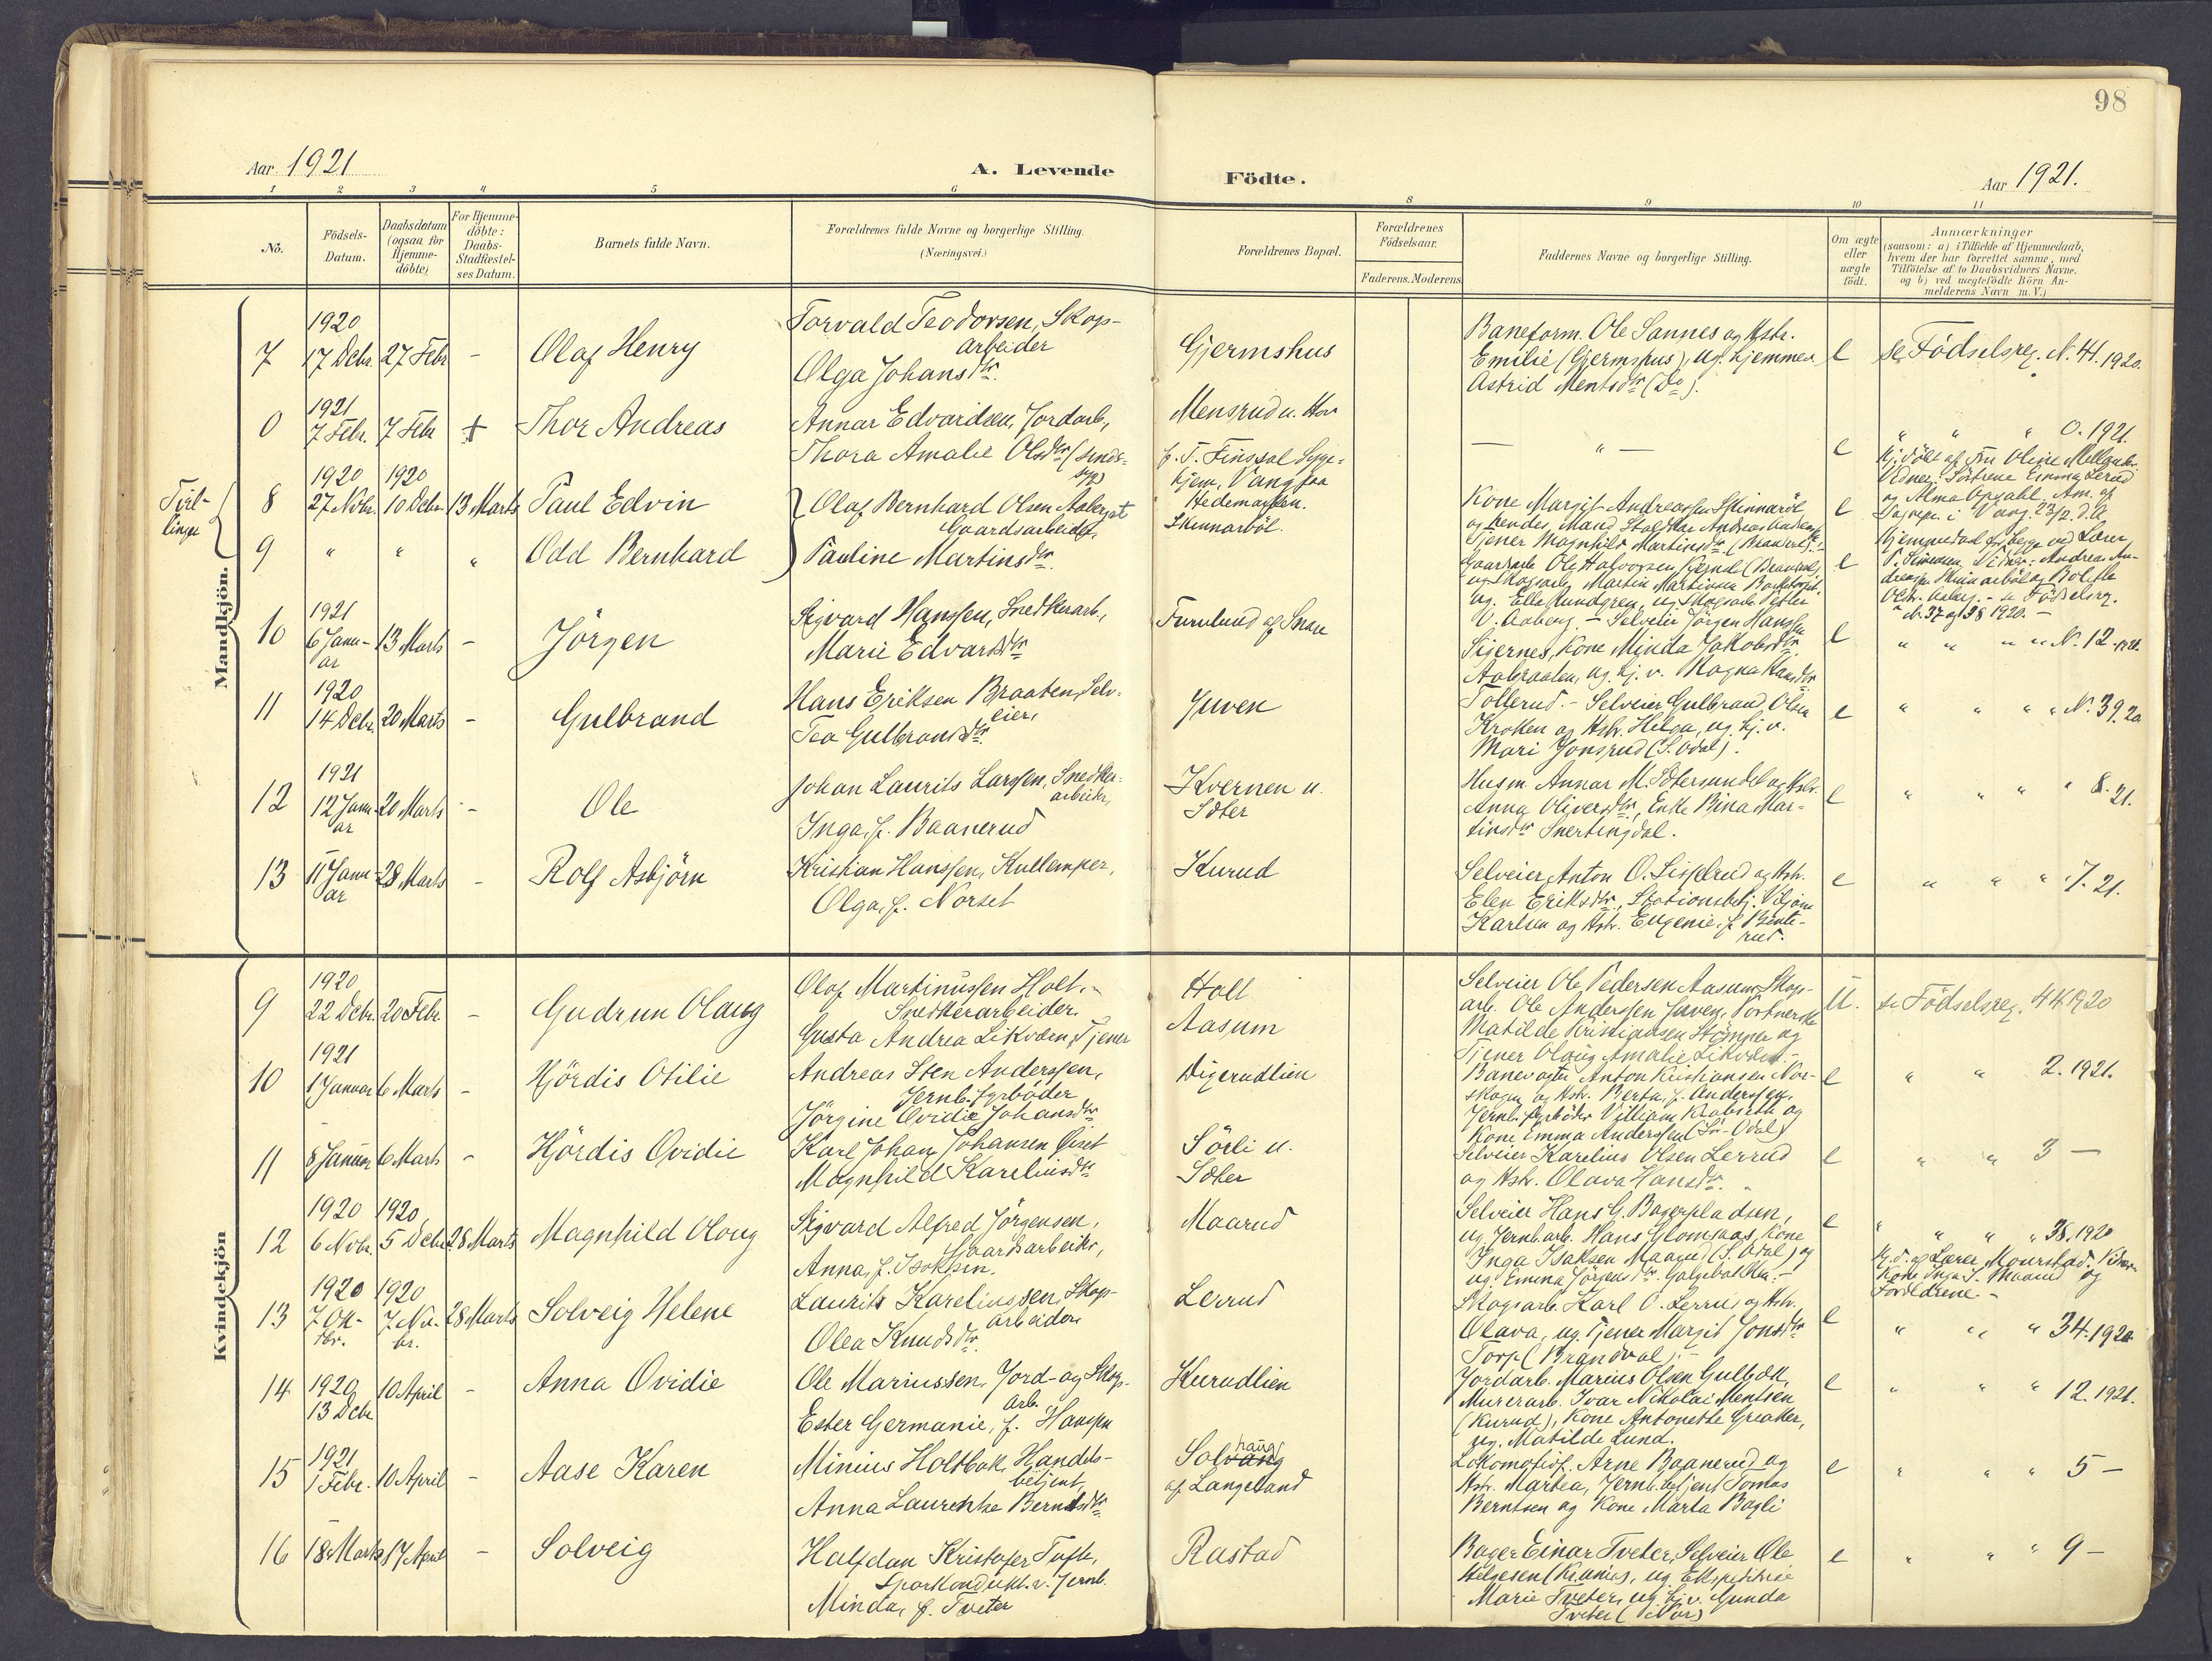 98
Aar 1921
A. Levende
Födte.
Aar 1921.
1 2 3 4 5 6 8 9 10 11
No.
Födsels-
Datum.
Daabsdatum
(ogsaa for
Hjemme-
döbte)
For Hjemme-
döbte:
Daabs-
Stadfæstel-
ses Datum.
Barnets fulde Navn.
Forældrenes fulde Navne og borgerlige Stilling.
(Næringsvei.)
Forældrenes Bopæl.
Forældrenes
Födselsaar.
Faderens. Moderens
Faddernes Navne og borgerlige Stilling.
Om ægte
eller
uægte
födt.
Anmærkninger
(saasom: a) i Tilfælde af Hjemmedaab,
hvem der har forrettet samme, med
Tilföielse af to Daabsvidners Navne.
og b) ved uægtefödte Börn An-
melderens Navn m. V.)
Mandkjön.
7
1920
17 Debr. 27 Febr -
Olaf Henry
Torvald Teodorsen, Skogs-
arbeider
Olga Johansdtr.
Gjermshus
Baneform. Ole Sannes og Hstr.
Emilie (Gjermshus), ug. hjemmev.
Astrid Mentsdtr (Do).
e
se Födselsreg. N. 41. 1920.
0
1921
7 Febr. 7 Febr +
Thor Andreas
Annar Edvardsen, Jordarb,
Thora Amalie Olsdtr (sinds-
syg)
Mensrud u. Hov
f. T. Finssal Syge-
hjem, Vang paa
Hedemarken.
— " —
e
" " " 0. 1921.
Tvil-
linge
8
1920 1920
27 Novbr. 10 Debr. 13 Marts
Paul Edvin
Olaf Bernhard Olsen Aaberget
Gaardsarbeider,
Pauline Martinsdtr.
Skinnarböl.
e
9
" " "
Odd Bernhard
e
N. 37 og 38 1920. -
10
1921
6 Janu-
ar
13 Marts -
Jörgen
Sigvard Hanssen, Snedkerarb,
Marie Edvardsdtr
e
" " " " N. 12
11
1920
14 Debr. 20 Marts -
Gulbrand
Hans Eriksen Braaten, Selv-
eier,
Tea Gulbrandsdtr.
Juven
Tollerud. - Selveier Gulbrand Olsen
Kroken og Hstr. Helga, ug. hj. v.
Mari Jonsrud (S. Odal).
e
" " " " N. 39. 20
12
1921
12 Janu-
ar
20 Marts -
Ole
Johan Laurits Larssen, Snedker-
arbeider,
Inga, f. Baanerud
Kvernen u.
Sæter
Husm. Annar M. Sætersmdel og Hstr.
Anna Oliversdtr, Enke Rina Mar-
tinsdtr Snertingdal.
e
" " " " 8. 21.
13
11 Janu-
ar
28 Marts -
Rolf Asbjörn
Kristian Hanssen, Kullemper,
Olga, f. Norset
Kurud
Selveier Anton O. Sisselrud og Hstr.
Elen Eriksdtr., Stationsbetj. Viljam
Karlsen og Hstr. Eugenie, f. Bente-
rud.
e
" " " 7. 21.
Kvindekjön
9
1920
22 Debr. 20 Febr. -
Gudrun Olaug
Olaf Martinussen Holt,
Snedkerarbeider.
Gusta Andrea Likværn, Tjener
Holt
Aasum
Selveier Ole Pedersen Aasum, Skogs-
arb. Ole Anderssen Juven, Portnerske
Matilde Kristiansen Stömner og
Tjener Olaug Amalie Likværn.-
U.
se Födselsreg. 44 1920
10
1921
1 Januar 6 Marts -
Hjördis Otilie
Andreas Sten Anderssen,
Jernb. fyrböder
Jörgine Ovidie Johansdtr
Digerudlien
Banevogter Anton Kristiansen Nor-
skogen og Hstr. Berta, f. Anderssen,
Jernb. fyrböder Villiam Krabseth og
Kone Emma Anderssen (Sö-Odal)
e
" " 2. 1921.
11
8 Januar 6 Marts -
Hjördis Ovidie
Karl Johan Johansen Öiset
Magnhild Kareliusdtr
Sörli u.
Sæter
Selveier Karelius Olsen Lerrud
og Hstr. Olava Hansdtr. "
e
" " 3 —
12
1920 1920
6 Novbr. 5 Debr. 28 Marts
Magnhild Olaug
Sigvard Alfred Jörgensen,
Gaardsarbeider,
Anna, f. Isaksen.
Maarud
Selveier Hans G. Bagerpladsen,
ug. Jernb. arb. Hans Glomsaas, Kone
Inga Isaksen Maarud (S. Odal) og
ug. Emma Jörgensdtr. Galgebakken.-
e
" " " " 38. 1920
Hj. d. af Lærer Mourstad. Vidner:
Kone Inga I. Maarud og
Forældrene -
13
1920 1920
7 Ok-
tbr.
7 No-
br.
28 Marts
Solveig Helene
Laurits Kareliussen, Skogs-
arbeider
Olea Knudsdtr.
Lerrud
Skogsarb. Karl O. Lerrud og Hstr,
Olava, ug. Tjener Margit Jonsdtr
Torp (Brandval).-
e
" " " 34. 1920.
14
1920
13 Debr
10 April -
Anna Ovidie
Ole Mariussen, Jord- og Skogs-
arb.
Ester Germanie, f. Hanssen
Kurudlien
Jordarb. Marius Olsen Gulbæk,
Murerarb. Ivar Nikolai Mentsen
(Kurud), Kone Antonette Greaker,
ug. Matilde Lund.
e
" " " 12. 1921.
15
1921
1 Febr. 10 April -
Aase Karen
Minius Holtbak, Handels-
betjent,
Anna Laurentze Berntsdtr
Solvang
haug
af Langeland
Lokomotivf. Arne Baanerud og
Hstr. Martea, Jernb. betjent Tomas
Berntsen og Kone Marta Bogli
e
" " " 5 —
16
18 Marts 17 April -
Solveig
Halfdan Kristofer Tufte,
Sporkondukt. v. Jernb.
Minda, f. Tveter
Rastad
Bager Einar Tveter, Selveier Ole
Helgesen (Kr.ania), ug. Ekspeditrise
Marie Tveter, ug. hj. v. Gunda
Tveter (Nor)
e
" " " 9 —